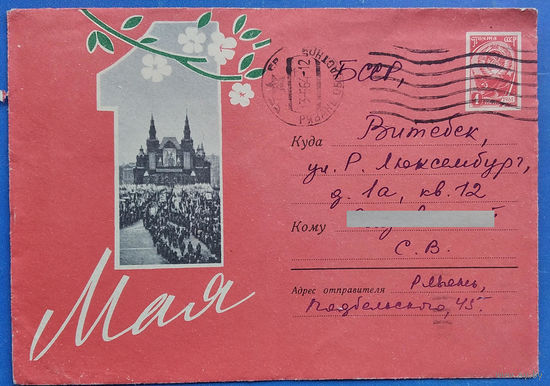 1
Мая
ПОЧТА СССР
4
БССР,
Куда Витебск,
ул. Р. Люксембург,
д. 1а, кв. 12
Кому
С. В.
Адрес отправителя Рязань,
Подбельского, 45.